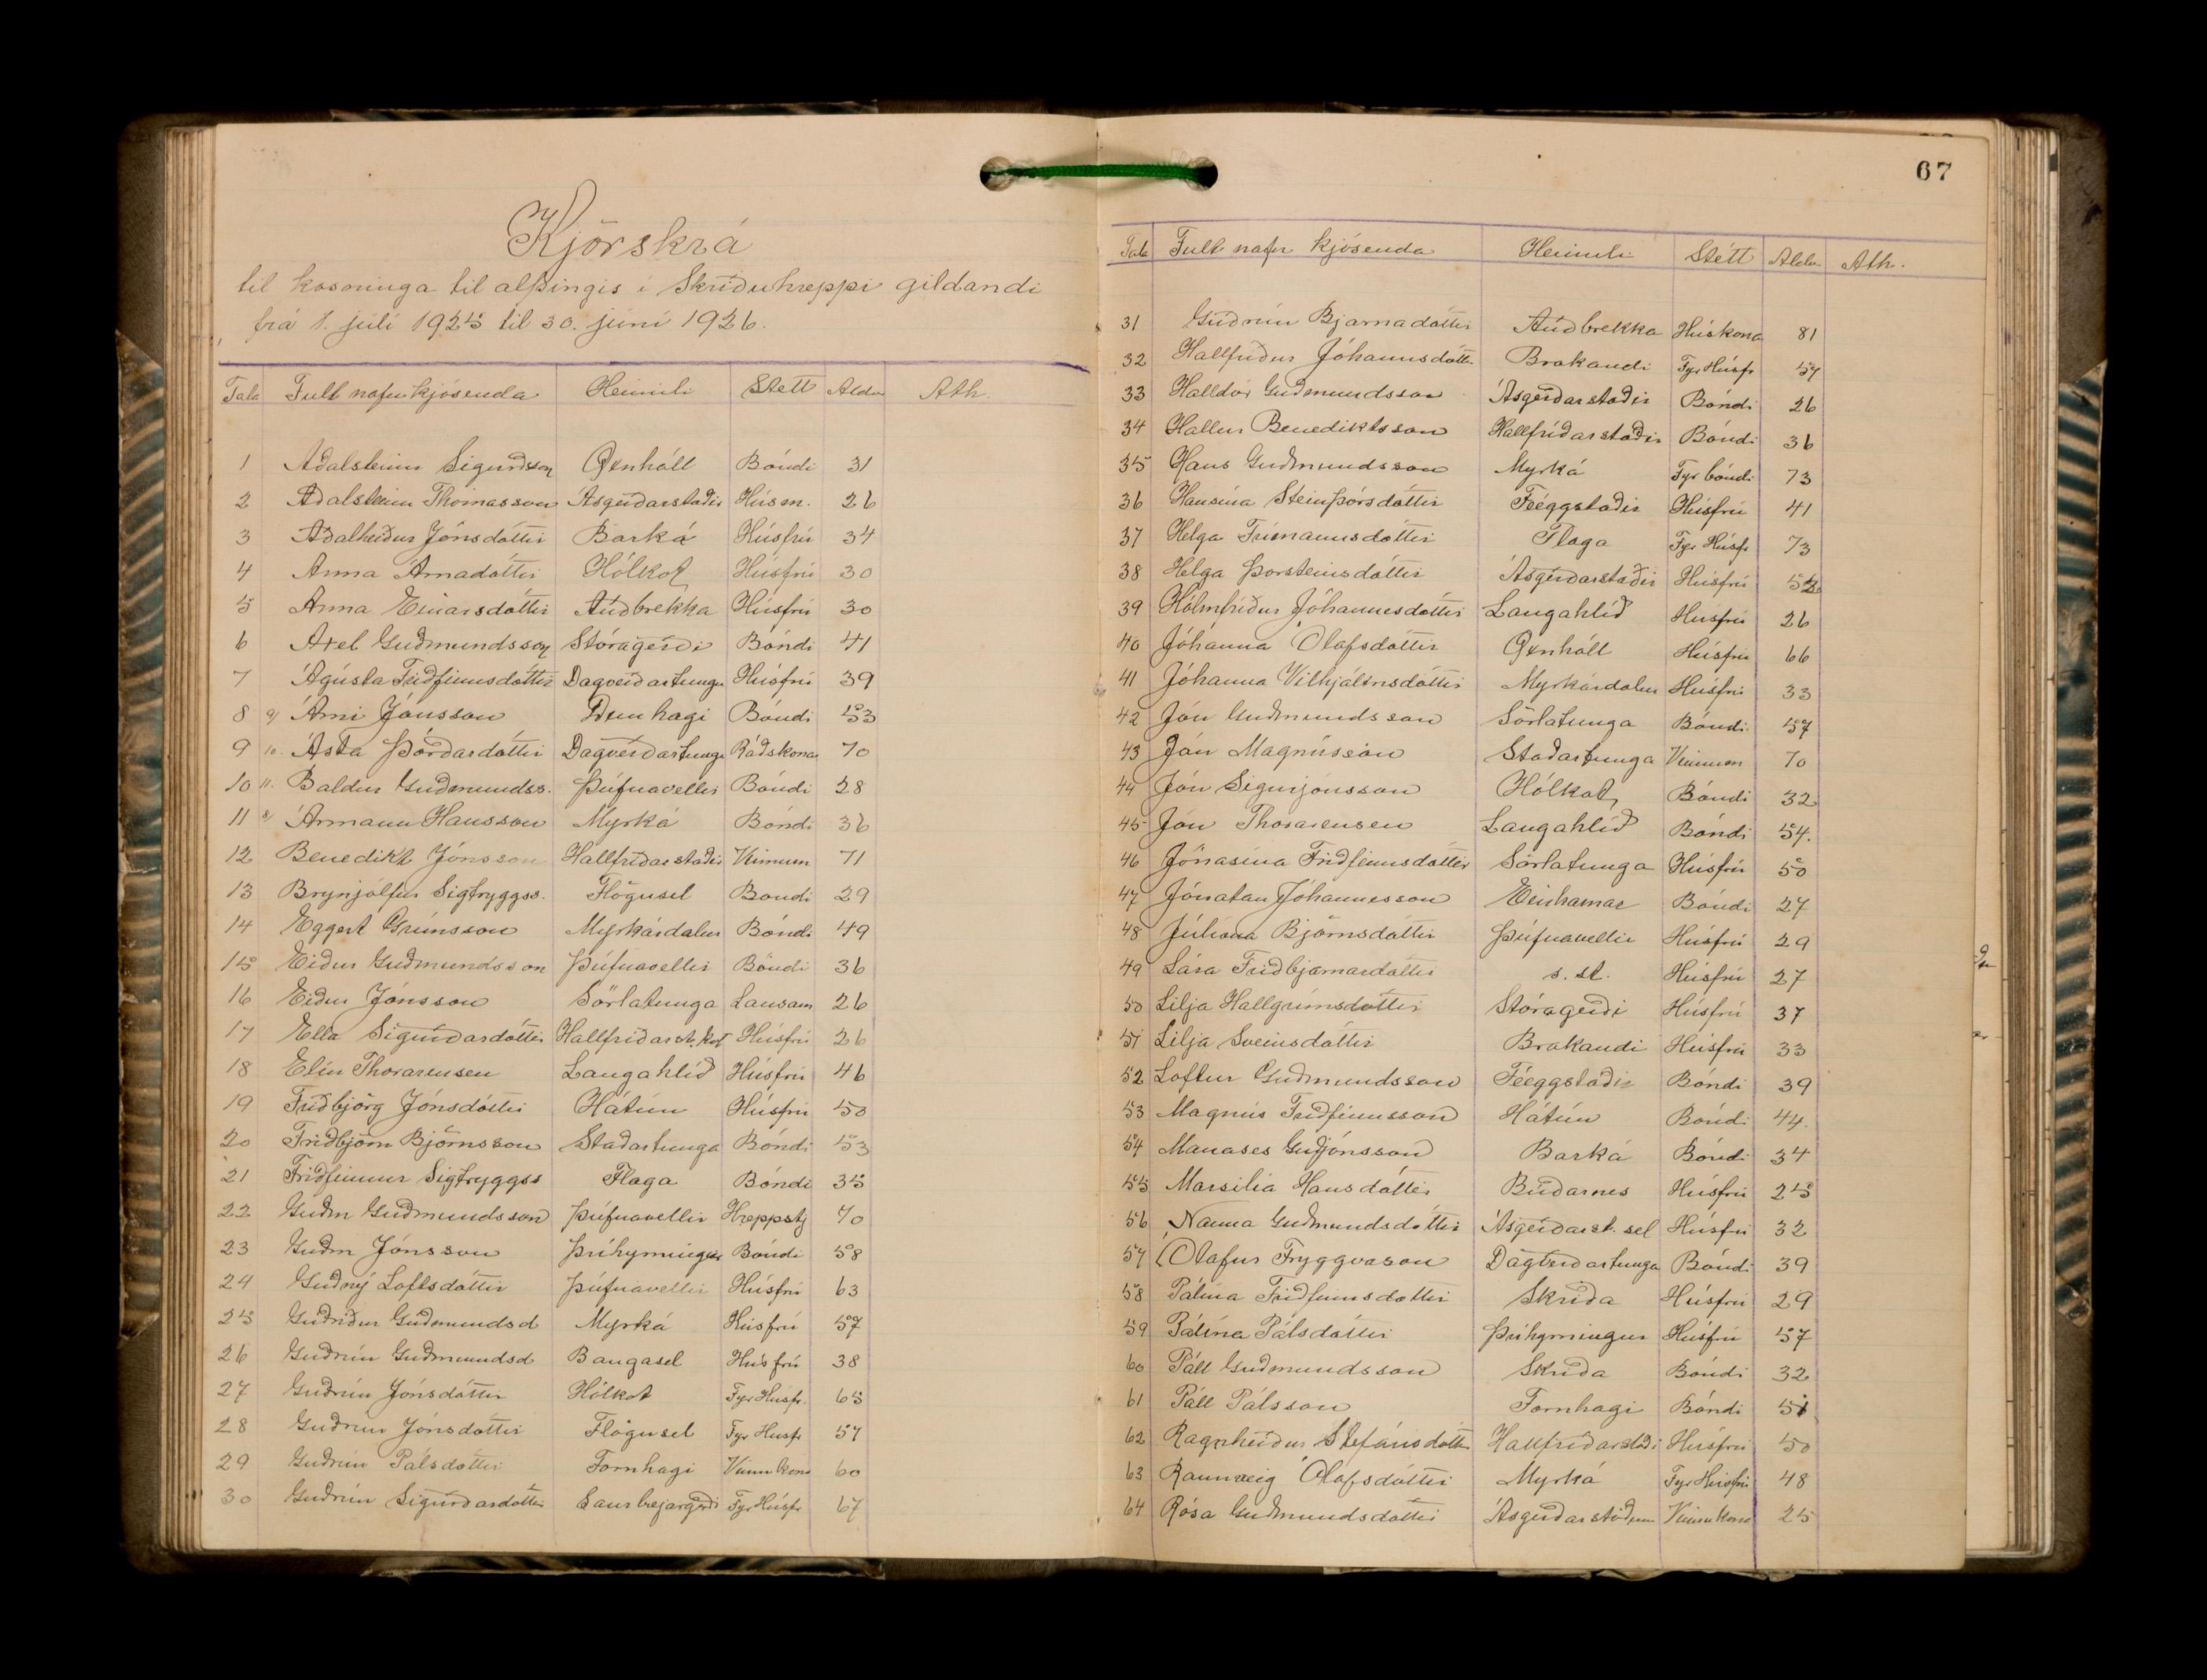 Kjörskrá
til kosninga til alþingis í Skriðuhreppi gildandi
frá 1. júlí 1925 til 30. júní 1926.
Tala Fullt nafn kjósenda Heimili Stétt Aldur Ath.
1 Aðalsteinn Sigurðsson Öxnhóll Bóndi 31
2 Aðalsteinn Thómasson Ásgerðarstaðir Húsm. 26
3 Aðalheiður Jónsdóttir Barká Húsfrú 34
4 Anna Árnadóttir Hólkot Húsfrú 30
5 Anna Einarsdóttir Auðbrekka Húsfrú 30
6 Axel Guðmundsson Stóragerði Bóndi 41
7 Ágústa Friðfinnsdóttir Dagverðartunga Húsfrú 39
8 9/ Árni Jónsson Dunhagi Bóndi 53
9 10. Ásta Þórðardóttir Dagverðartunga Ráðskona 70
10 11. Baldur Guðmundss. Þúfnavellir Bóndi 28
11 8/ Ármann Hansson Myrká Bóndi 36
12 Benedikt Jónsson Hallfríðarstaðir Vinnum 71
13 Brynjólfur Sigtryggss. Flögusel Bóndi 29
14 Eggert Grímsson Myrkárdalur Bóndi 49
15 Eiður Guðmundsson Þúfnavellir Bóndi 36
16 Eiður Jónsson Sörlatunga Lausam 26
17 Ella Sigurðardóttir Hallfríðarst.kot Húsfrú 26
18 Elín Thorarensen Langahlíð Húsfrú 46
19 Friðbjörg Jónsdóttir Hátún Húsfrú 50
20 Friðbjörn Björnsson Staðartunga Bóndi 53
21 Friðfinnur Sigtryggss Flaga Bóndi 35
22 Guðm Guðmundsson Þúfnavellir Hreppstj 70
23 Guðm Jónsson Þríhyrningur Bóndi 58
24 Guðný Loftsdóttir Þúfnavellir Húsfrú 63
25 Guðríður Guðmundsd Myrká Húsfrú 57
26 Guðrún Guðmundsd Baugasel Húsfrú 38
27 Guðrún Jónsdóttir Hólkot Fyr Húsfr. 65
28 Guðrún Jónsdóttir Flögusel Fyr Húsfr 57
29 Guðrún Pálsdóttir Fornhagi Vinnukona 60
30 Guðrún Sigurðardóttir Saurbæjargerði Fyr Húsfr 67
67
Tala Fullt nafn kjósenda Heimili Stétt Aldur Ath.
31 Guðrún Bjarnadóttir Auðbrekka Húskona 81
32 Hallfríður Jóhannsdóttir Brakandi Fyr Húsfr 57
33 Halldór Guðmundsson Ásgerðarstaðir Bóndi 26
34 Hallur Benediktsson Hallfríðarstaðir Bóndi 36
35 Hans Guðmundsson Myrká Fyr bóndi 73
36 Hansína Steinþórsdóttir Féeggstaðir Húsfrú 41
37 Helga Frímannsdóttir Flaga Fyr Húsfr 73
38 Helga Þorsteinsdóttir Ásgerðarstaðir Húsfrú
39 Hólmfríður Jóhannesdóttir Langahlíð Húsfrú 26
40 Jóhanna Ólafsdóttir Öxnhóll Húsfrú 66
41 Jóhanna Vilhjálmsdóttir Myrkárdalur Húsfrú 33
42 Jón Guðmundsson Sörlatunga Bóndi 57
43 Jón Magnússon Staðartunga Vinnum 70
44 Jón Sigurjónsson Hólkot Bóndi 32
45 Jón Thorarensen Langahlíð Bóndi 54.
46 Jónasína Friðfinnsdóttir Sörlatunga Húsfrú 50
47 Jónatan Jóhannesson Einhamar Bóndi 27
48 Júlíana Björnsdóttir Þúfnavellir Húsfrú 29
49 Lára Friðbjarnardóttir s. st. Húsfrú 27
50 Lilja Hallgrímsdóttir Stóragerði Húsfrú 37
51 Lilja Sveinsdóttir Brakandi Húsfrú 33
52 Loftur Guðmundsson Féeggstaðir Bóndi 39
53 Magnús Friðfinnsson Hátún Bóndi 44.
54 Manases Guðjónsson Barká Bóndi 34
55 Marsilía Hansdóttir Búðarnes Húsfrú 25
56 Nanna Guðmundsdóttir Ásgerðarst.sel Húsfrú 32
57 Ólafur Tryggvason Dagverðartunga Bóndi 39
58 Pálína Friðfinnsdóttir Skriða Húsfrú 29
59 Pálína Pálsdóttir Þríhyrningur Húsfrú 57
60 Páll Guðmundsson Skriða Bóndi 32
61 Páll Pálsson Fornhagi Bóndi 51
62 Ragnheiður Stefánsdóttir Hallfríðarstaði Húsfrú 50
63 Rannveig Ólafsdóttir Myrká Fyr Húsfrú 48
64 Rósa Guðmundsdóttir Ásgerðarstöðum Vinnukona 25